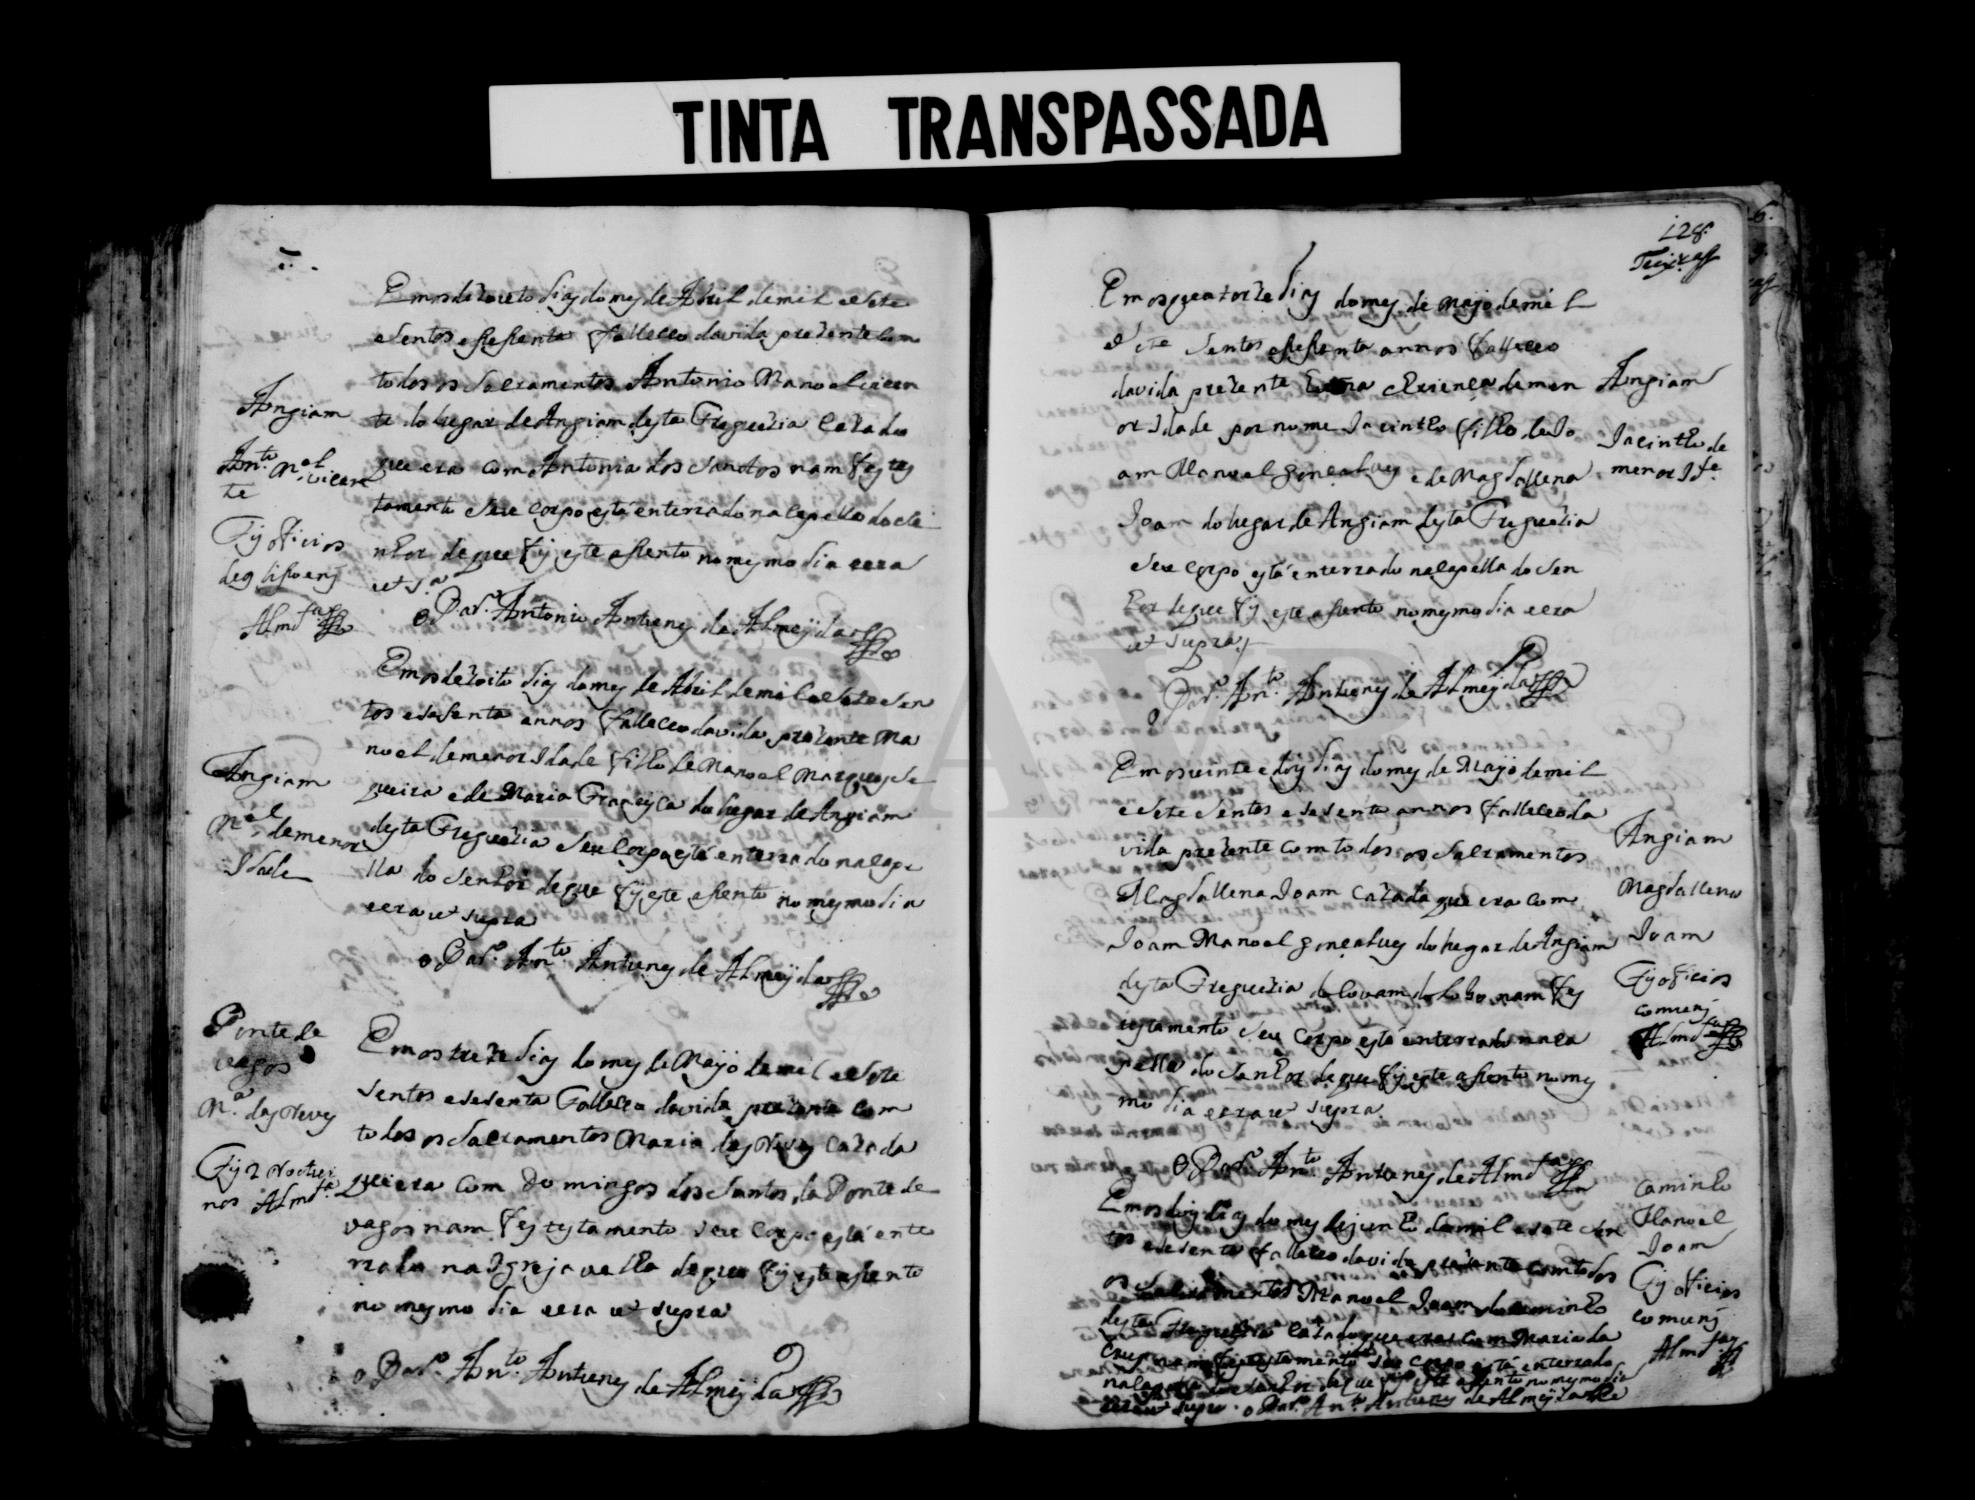 TINTA TRANSPASSADA
Emos dezoito dias do mes de Abril de mil e sete
e sentos e sessenta falleceo da vida prezente com
todos os Sacramentos Antonio Manoel vicen
te do lugar de Angiam desta Freguezia cazado
que era com Antonia dos Santos nam fes tes
tamento seu corpo está enterrado na capella do Se
nhor de que fis este assento no mesmo dia e era
ut S.ª
o Par.º Antonio Antunes de Almeyda
Angiam
Ant.º M.el vicen
te
Fis officios
Almd.ª
Emos dezoito dias do mes de Abril de mil e sete sen
tos e sesenta annos falleceo da vida prezente Ma
noel de menor Idade filho de Manoel Marques se
queira e de Maria Francisca do lugar de Angiam
desta Freguezia seu corpo está enterrado na cape
lla do Senhor de que fis este assento no mesmo dia
e era ut supra
o Par.º Ant.º Antunes de Almeyda
Angiam
M.el de menor
Idade
Emos treze dias do mes de Mayo de mil e sete
sentos e sesenta Falleceo da vida prezente com
todos os Sacramentos Maria das Neves cazada
que era com Domingos dos Santos da Ponte de
vagos nam fes testamento seu corpo está ente
rrado na Igreja velha de que fis este assento
no mesmo dia e era ut supra
o Par.º Ant.º Antunes de Almeyda
Ponte de
vagos
M.ª das Neves
Fis 2 noctur
nos Almd.ª
128.
Emos quatorze dias do mes de Mayo de mil
e sete sentos e sessenta annos falleceo
da vida prezente huma crianca de men
or Idade por nome Jacintho filho de Jo
am Manoel gonçalves e de Magdallena
Joam do lugar de Angiam desta Freguezia
seu corpo está enterrado na capella do Sen
hor de que fis este assento no mesmo dia e era
ut supra
o Par.º Ant.º Antunes de Almeyda
Angiam
Jacintho de
menor Id.e
Emos vinte e dois dias do mes de Mayo de mil
e sete sentos e sesenta annos falleceo da
vida prezente com todos os Sacramentos
Magdallena Joam cazada que era com
Joam Manoel gonçalves do lugar de Angiam
desta Freguezia de Covam do Lobo nam fes
testamento seu corpo está enterrado na ca
pella do Senhor de que fis este assento no mes
mo dia e era ut supra
O Par.º Ant.º Antunes de Almd.ª
Angiam
Magdallena
Joam
Fis officios
comuns
Almd.ª
Emos dois dias do mes de junho de mil e sete sen
tos e sesenta falleceo da vida prezente com todos
os Sacramentos Manoel Joam do caminho
desta Freguezia cazado que era com Maria da
Crus nam fes testamento seu corpo está enterrado
na capella do Senhor de que fis este assento no mesmo dia
e era ut supra o Par.º Ant.º Antunes de Almeyda
Caminho
Manoel
Joam
Fis officios
comuns
Almd.ª